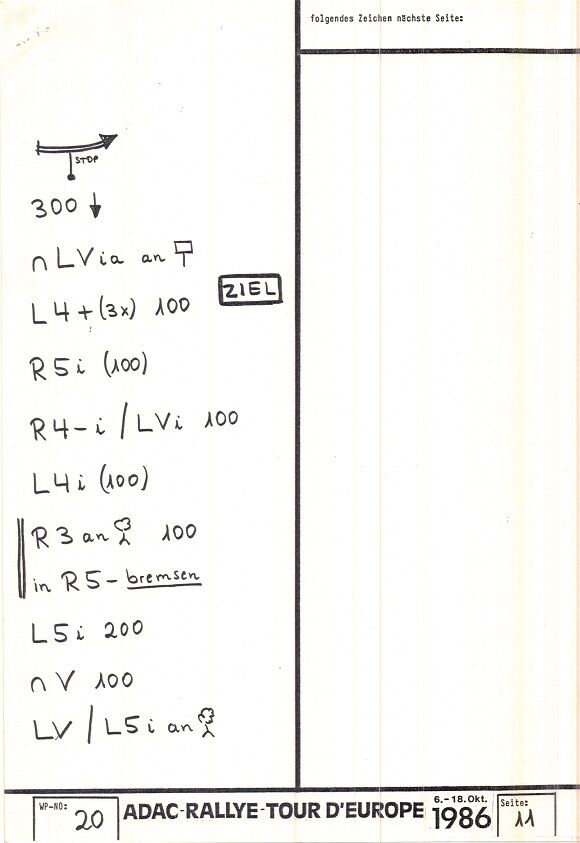 folgendes Zeichen nächste Seite:
STOP
300 ↓
∩ LVia an
ZIEL
L4+(3x) 100
R5i (100)
R4-i / LVi 100
L4i (100)
R3 an 100
in R5- bremsen
L5i 200
∩ V 100
LV / L5i an
WP-NO: 20
ADAC-RALLYE-TOUR D'EUROPE
6.-18.Okt.
1986
Seite: 11